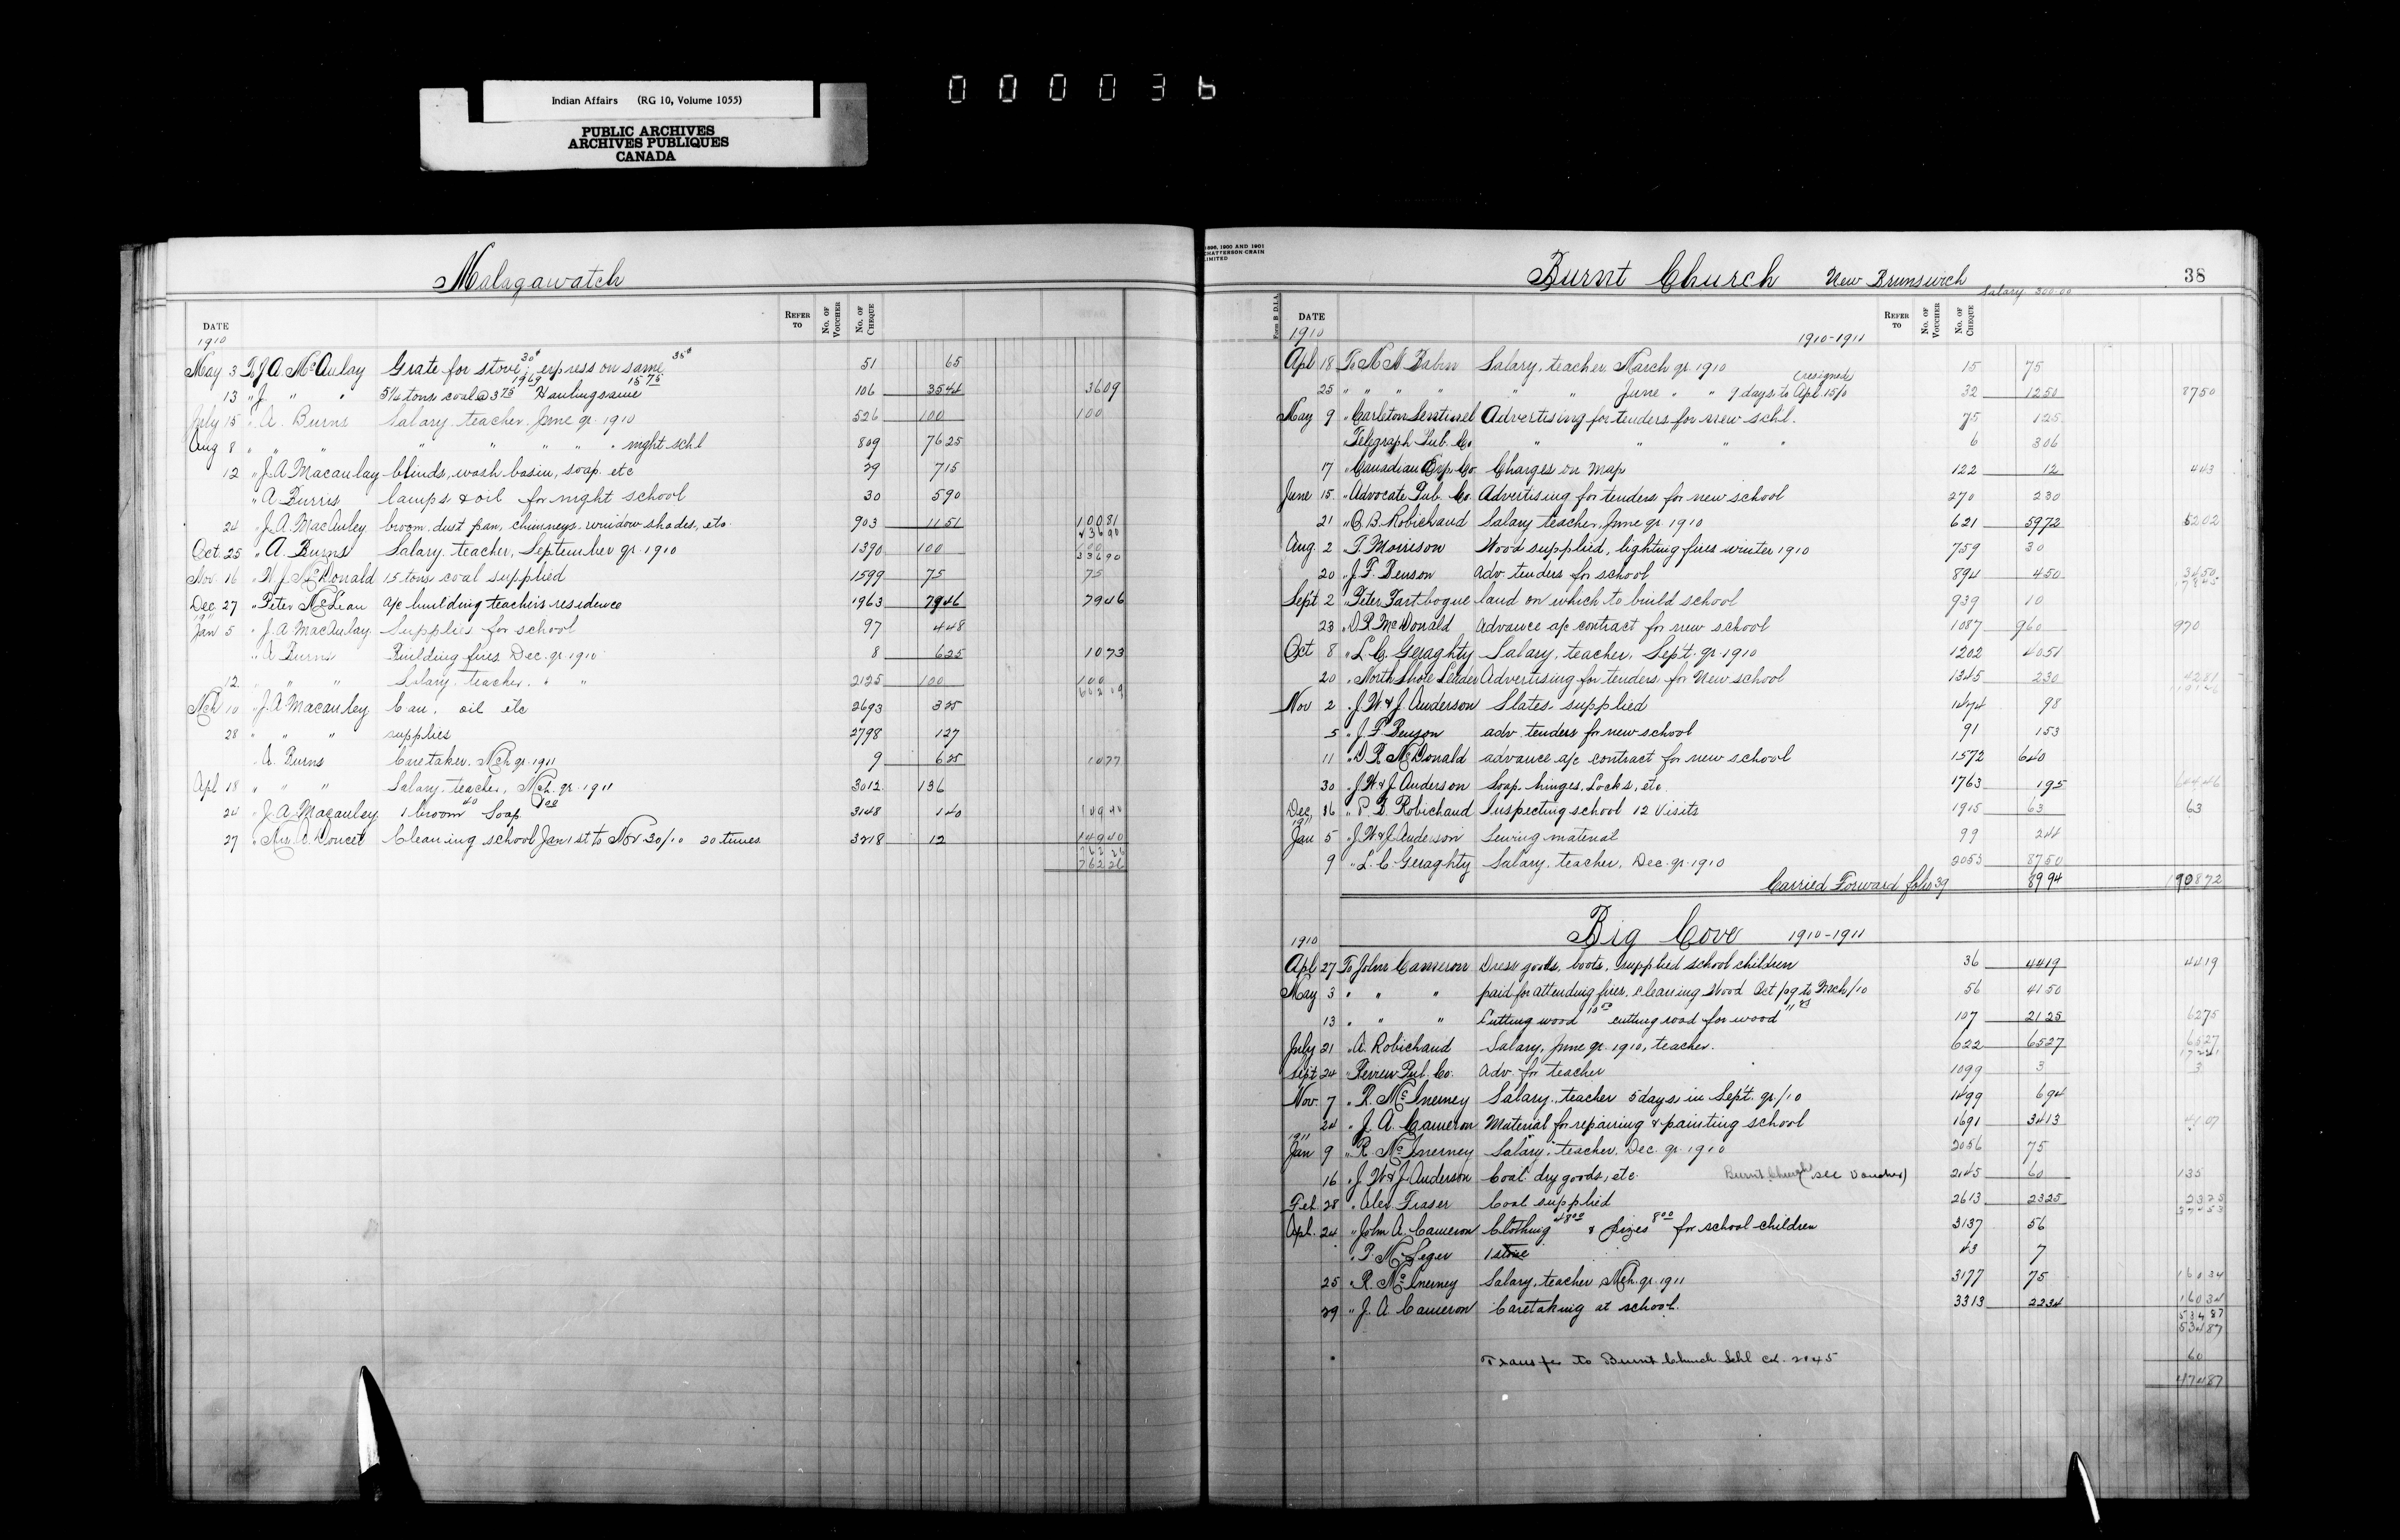 Indian Affairs (RG 10, Volume 1055)
PUBLIC ARCHIVES
ARCHIVES PUBLIQUES
CANADA
000036
Malagawatch
DATE REFER TO No. OF VOUCHER No. OF CHEQUE
1910
May 3 To J A McAulay Grate for stove 30¢; express on same 35¢ 51 65
13 " J " " 5¼ tons coal @ 3 75 19 69 Hauling same 15 75 106 35 44 36 09
July 15 " A. Burns Salary teacher June qr. 1910 526 100 100
Aug 8 " " " " " " " night schl 809 76 25
12 " J. A Macaulay blinds, wash basin, soap etc 29 7 15
" A Burns lamps & oil for night school 30 5 90
24 " J. A. MacAuley broom, dust pan, chimneys, window shades, etc. 903 11 51 100 81
236 90
Oct. 25 " A. Burns Salary, teacher, September qr. 1910 1390 100 100
336 90
Nov. 16 " W. J. McDonald 15 tons coal supplied 1599 75 75
Dec. 27 " Peter McLean a/c building teachers residence 1963 79 46 79 46
1911
Jan 5 " J. A MacAulay Supplies for school 97 4 48
" A Burns Building fires Dec. qr. 1910 8 6 25 10 73
12. " " " Salary. teacher. " " 2125 100 100
602 09
Mch 10 " J. A Macauley Can, oil etc 2693 3 25
28 " " " supplies 2798 1 27
A. Burns Caretaker. Mch qr. 1911 9 6 25 10 77
Apl 18 " " " Salary, teacher, Mch. qr. 1911 3012 136
24 " J. A. Macauley 1 broom 40 Soap 1 00 3148 1 40
27 " Mrs. A. Doucet Cleaning school Jan 1st to Nov 30/10 20 times 3218 12 149 40
762 26
762 26
1896, 1900 AND 1901
CHATTERSON-CRAIN
LIMITED
Burnt Church New Brunswick 38
Salary 300.00
Form B D.I.A. DATE REFER TO No. OF VOUCHER No. OF CHEQUE
1910 1910-1911
Apl 18 To M M Babin Salary, teacher, March qr. 1910 15 75
25 " " " " " " June " " 9 days to Apl. 15/10 (resigned) 32 12 50 87 50
May 9 " Carleton Sentinel Advertising for tenders for new schl. 75 1 25
Telegraph Pub. Co. " " " " 6 3 06
17 " Canadian Exp. Co. Charges on map 122 12 4 43
June 15 " Advocate Pub. Co. Advertising for tenders for new school 270 2 30
21 " C. B. Robichaud Salary teacher, June qr 1910 621 59 72 62 02
Aug. 2 " T. Morrison Wood supplied, lighting fires winter 1910 759 30
20 " J. F. Benson adv. tenders for school 894 4 50 34 50
Sept 2 " Peter Tartbogue land on which to build school 939 10
23 " D R McDonald Advance a/c contract for new school 1087 960 970
Oct 8 " L. C. Geraghty Salary, teacher, Sept. qr. 1910 1202 40 51
20 " North Shore Leader Advertising for tenders for New school 1345 2 30 42 81
Nov 2 " J. W & J. Anderson Slates supplied 1474 98
5 " J F Benson adv. tenders for new school 91 1 53
11 " D R McDonald advance a/c contract for new school 1572 640
30 " J. W. & J. Anderson Soap, hinges, Locks, etc. 1763 1 95 644 46
Dec, 16 " P. D. Robichaud Inspecting school 12 Visits 1915 63 63
1911
Jan 5 " J W & J. Anderson Sewing material 99 2 44
9 " L. C. Geraghty Salary, teacher, Dec. qr. 1910 2053 87 50
Carried Forward folio 39 89 94 1908 72
Big Cove 1910-1911
1910
Apl 27 To John Cameron Dress goods, boots, supplied school children 36 44 19 44 19
May 3 " " " paid for attending fires, cleaning Wood Oct /09 to Mch/10 56 41 50
13 " " " Cutting wood 10 50 cutting road for wood 107 21 25 62 75
July 21 " A. Robichaud Salary, June qr. 1910, teacher. 622 65 27 65 27
172 21
Sept 24 " Review Pub. Co. Adv. for teacher 1099 3 3
Nov. 7 " R. McInerney Salary, teacher 5 days in Sept. qr./10 1499 6 94
24 " J. A. Cameron Material for repairing & painting school 1691 34 13 41 07
1911
Jan 9 " R. McInerney Salary, teacher, Dec. qr. 1910 2056 75
16 " J. W & J. Anderson Coal, dry goods, etc. Burnt Church (see voucher) 2145 60 135
Feb. 28 " Alex Fraser Coal supplied 2613 23 25 23 25
374 53
Apl. 24 " John A. Cameron Clothing 48 00 & prizes 8 00 for school children 3137 56
" P. McLeger 1 stove 43 7
25 " R. McInerney Salary, teacher Mch. qr. 1911 3177 75 160 34
29 " J. A. Cameron Caretaking at school. 3313 22 34 160 34
534 87
534 87
Transfer to Burnt Church Schl ck. 2145 60
474 87